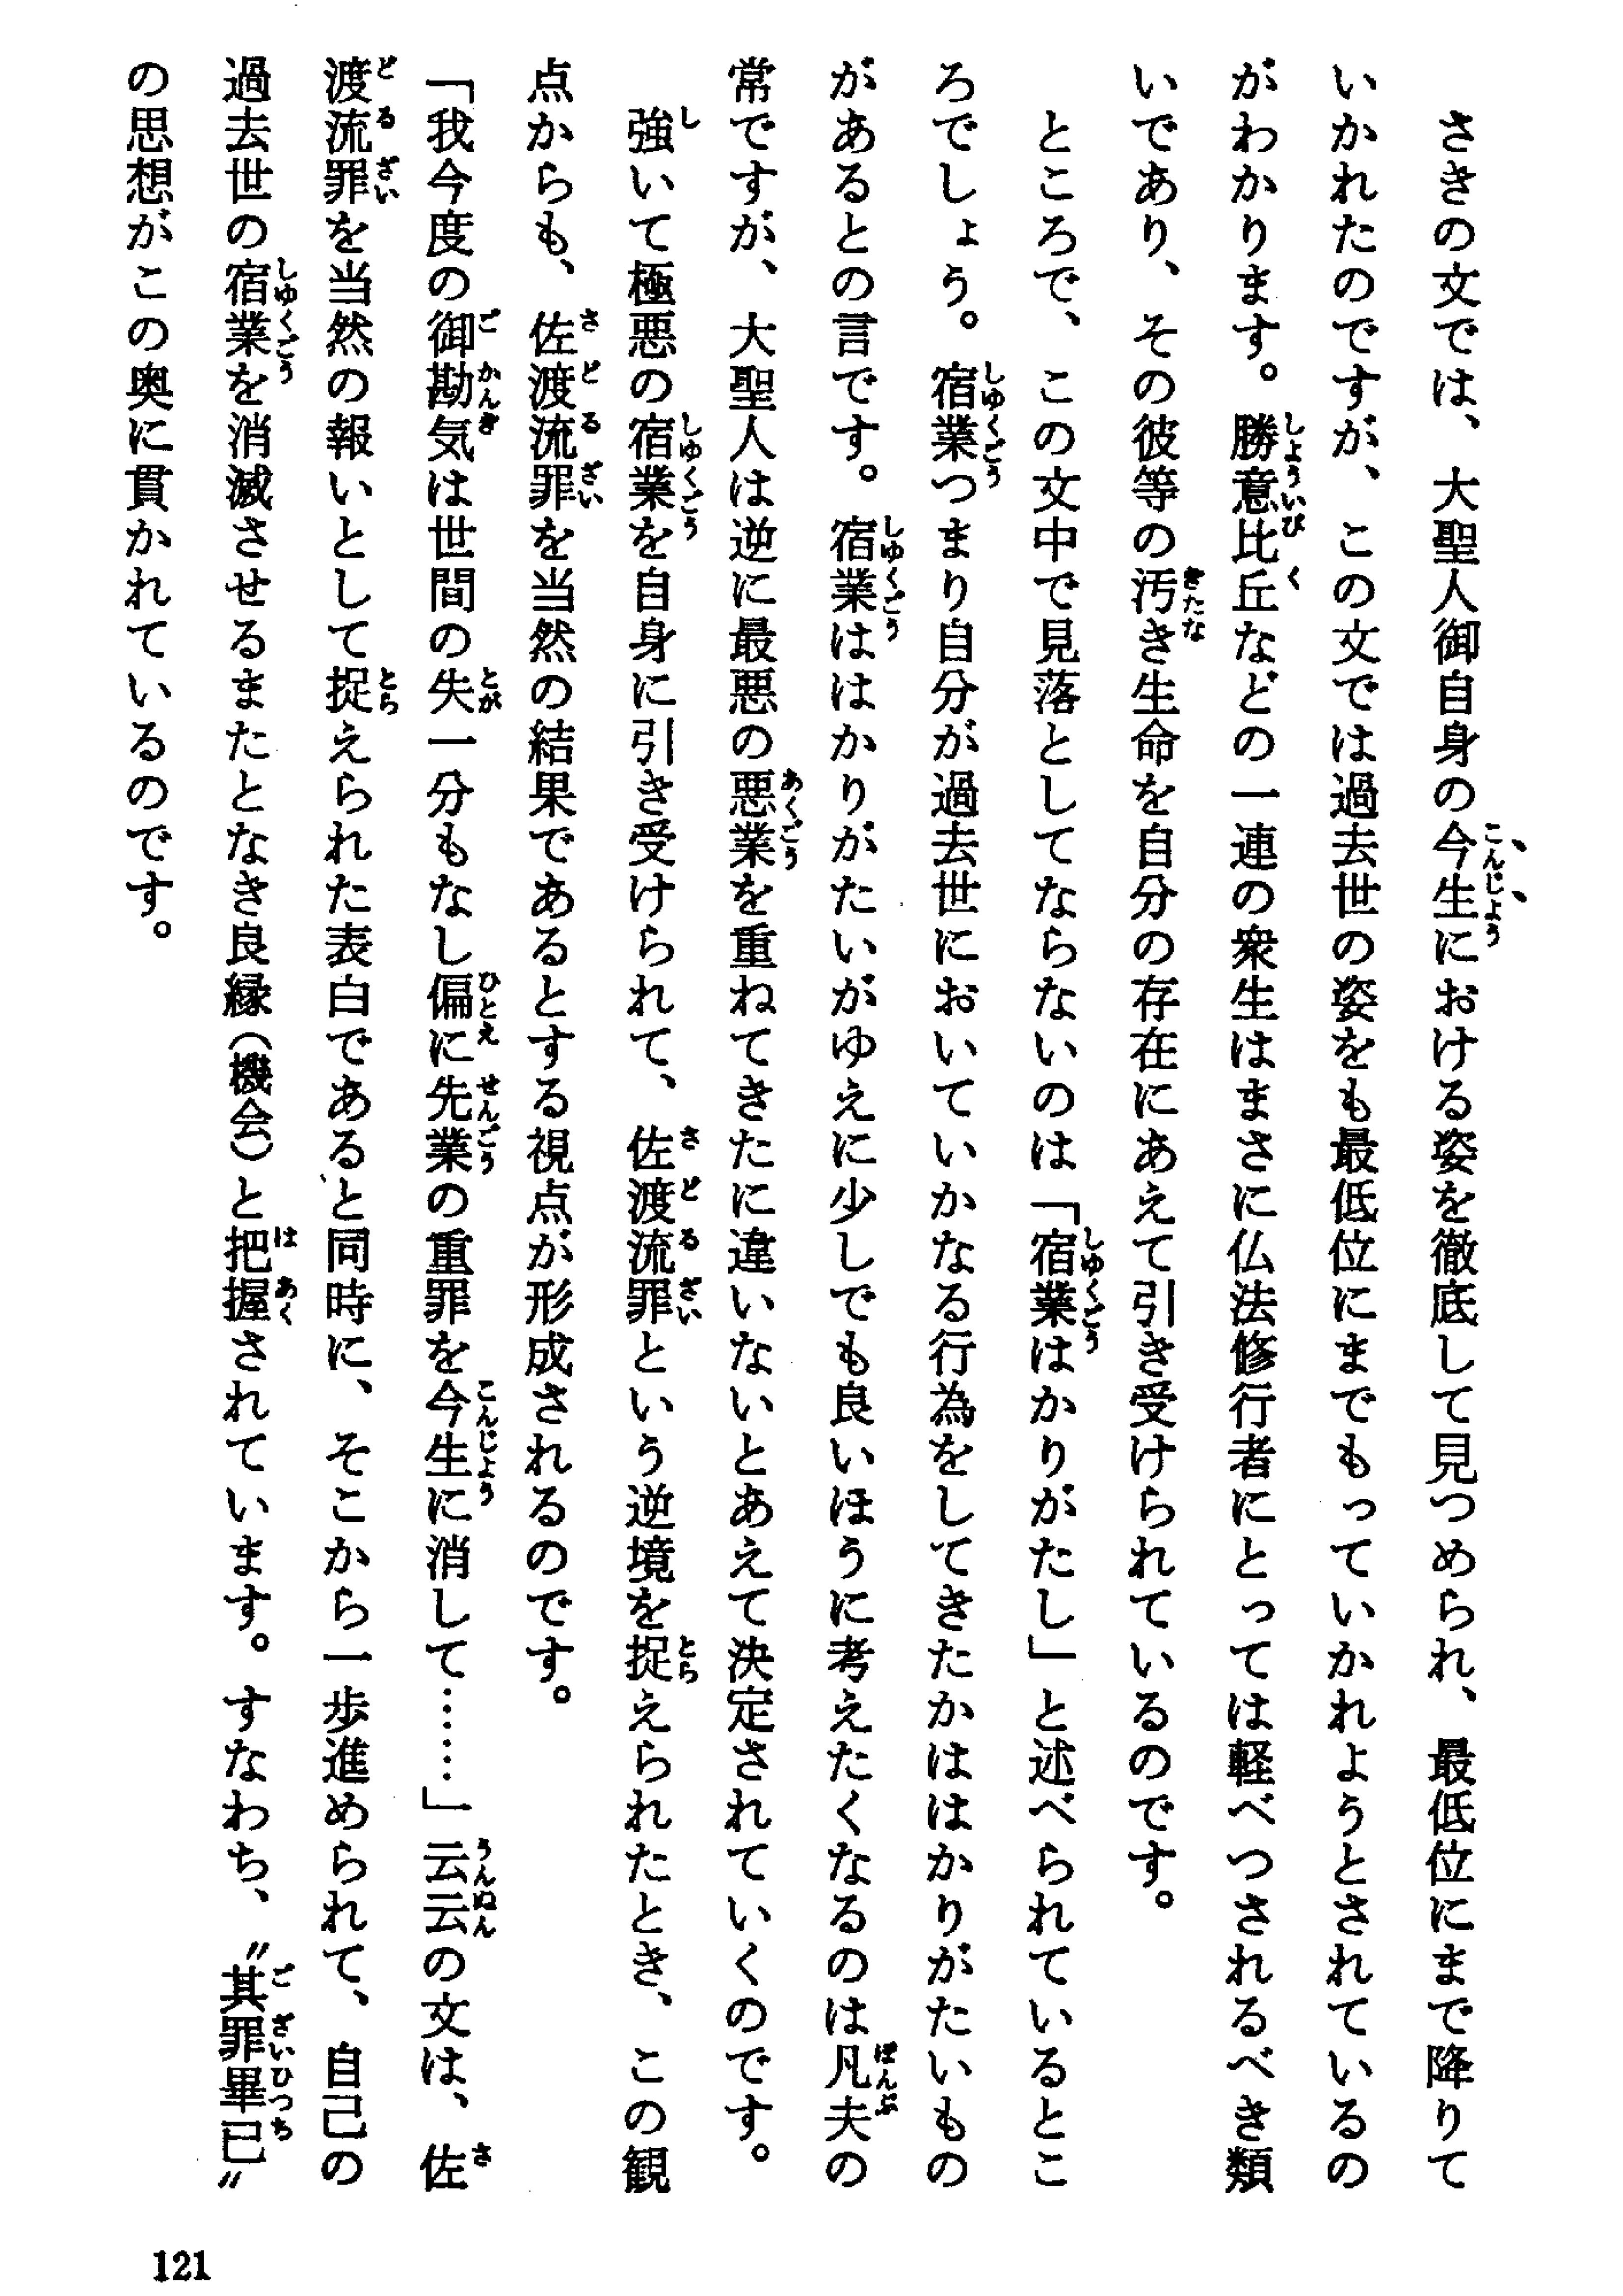 さきの文では、大聖人御自身の今生における姿を徹底して見つめられ、最低位にまで降りて
いかれたのですが、この文では過去世の姿をも最低位にまでもっていかれようとされているの
がわかります。勝意比丘などの一連の衆生はまさに仏法修行者にとっては軽べつされるべき類
いであり、その彼等の汚き生命を自分の存在にあえて引き受けられているのです。
ところで、この文中で見落としてならないのは「宿業はかりがたし」と述べられているとこ
ろでしょう。宿業つまり自分が過去世においていかなる行為をしてきたかははかりがたいもの
があるとの言です。宿業ははかりがたいがゆえに少しでも良いほうに考えたくなるのは凡夫の
常ですが、大聖人は逆に最悪の悪業を重ねてきたに違いないとあえて決定されていくのです。
強いて極悪の宿業を自身に引き受けられて、佐渡流罪という逆境を捉えられたとき、この観
点からも、佐渡流罪を当然の結果であるとする視点が形成されるのです。
「我今度の御勘気は世間の失一分もなし偏に先業の重罪を今生に消して……」云云の文は、佐
渡流罪を当然の報いとして捉えられた表白であると同時に、そこから一歩進められて、自己の
過去世の宿業を消滅させるまたとなき良縁（機会）と把握されています。すなわち、〝其罪畢已〟
の思想がこの奥に貫かれているのです。
121